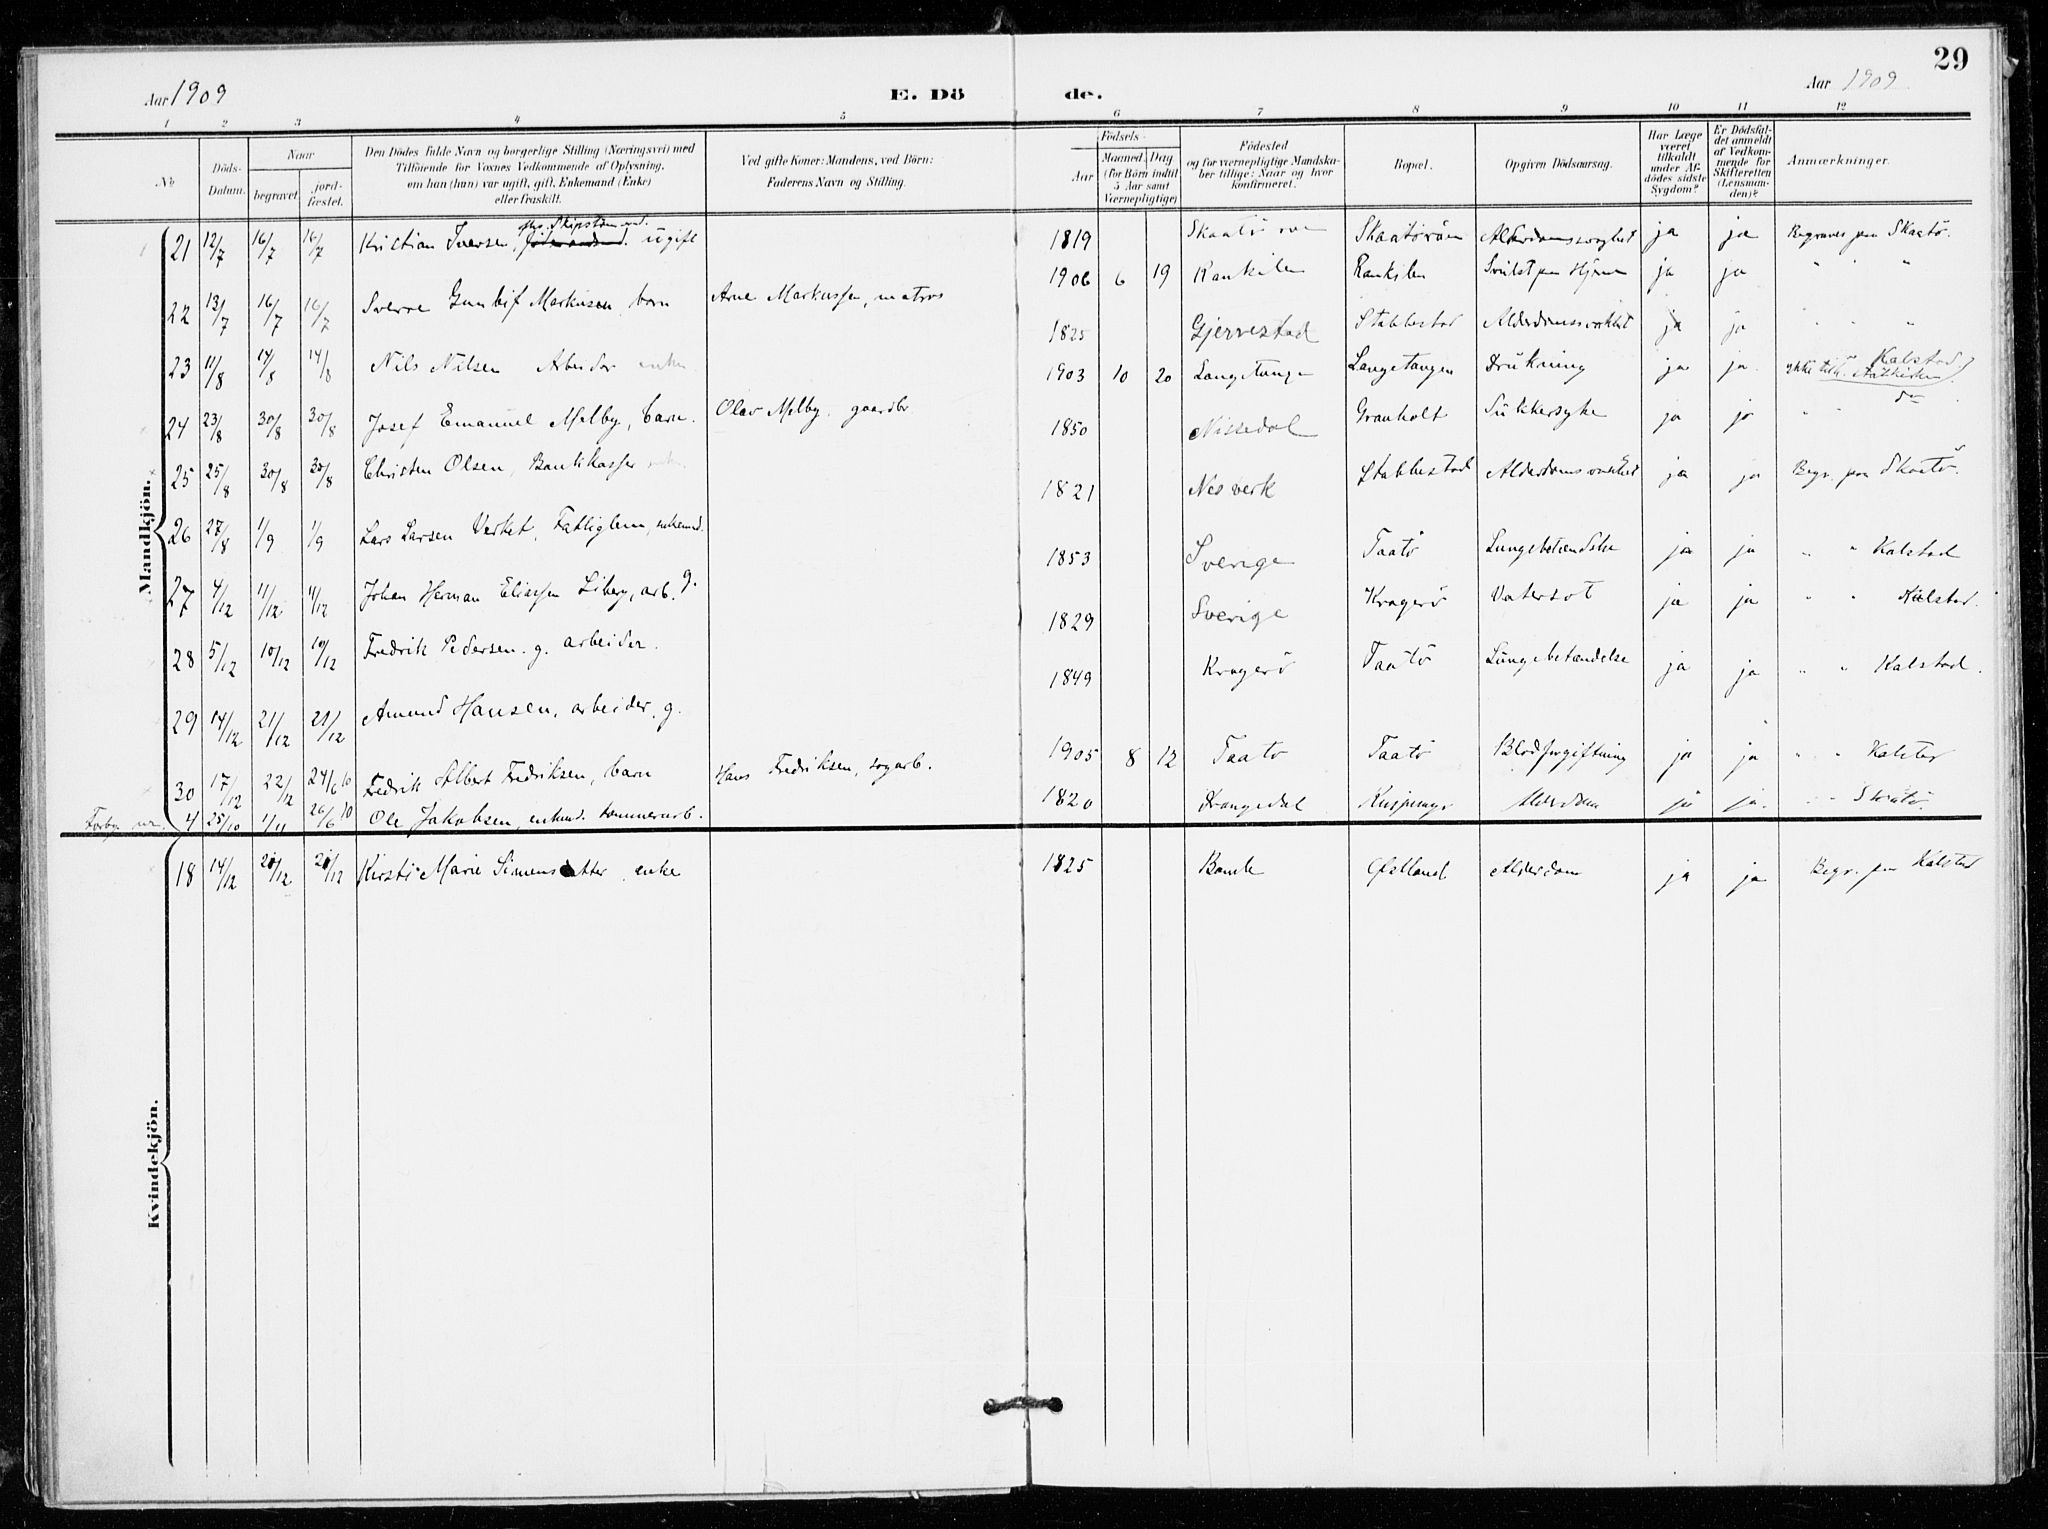 29
Aar 1909 E. Dö de. Aar 1909
1 2 3 4 5 6 7 8 9 10 11 12
No
Döds-Datum.
Naar
begravet.
jord-fæstet.
Den Dödes fulde Navn og borgerlige Stilling (Næringsvei) med
Tilföiende for Voxnes Vedkommende af Oplysning,
om han (hun) var ugift, gift, Enkemand (Enke)
eller fraskilt.
Ved gifte Koner: Mandens, ved Börn:
Faderens Navn og Stilling.
Födsels-
Aar
Maaned. Dag
(for Börn indtil
5 Aar samt
Værnepligtige)
Födested
og for værnepligtige Mandska-
ber tillige: Naar og hvor
konfirmeret.
Bopæl.
Opgiven Dödsaarsag.
Har Læge
været
tilkaldt
under Af-
dödes sidste
Sygdom?
Er Dödsfal-
det anmeldt
af Vedkom-
mende for
Skifteretten
(Lensman-
den)?
Anmærkninger.
Mandkjön.
21 12/7 16/7 16/7 Kristian Iversen, ugift 1819 Skaatö Skaatöröen ja ja Begraves paa Skaatö.
22 13/7 16/7 16/7 Sverre Markusen, barn Arne Markussen, matros 1906 6 19 Rankilen Rankilen Svulst paa Hjernen ja ja " " "
23 11/8 14/8 14/8 Nils Nilsen Arbeider enkem 1825 Gjerrestad Stabbestad ja ja " " "
24 23/8 30/8 30/8 Josef Emanuel Melby, barn. Olav Melby, gaardbr 1903 10 20 Langetangen Langetangen Drukning ja ja. Kalstad
25 25/8 30/8 30/8 Christen Olsen, 1850 Nissedal Granholt Sukkersyke ja ja " " do
26 27/8 1/9 1/9 Lars Larsen Verket, Fattiglem, enkemd. 1821 Nes verk Stabbestad ja ja Begr. paa Skaatö.
27 4/12 11/12 11/12 Johan Herman Eliassen Siberg, arb. g. 1853 Sverige Taatö Lungebetændelse ja ja " " Kalstad
28 5/12 10/12 10/12 Fredrik Pedersen. g. arbeider. 1829 Sverige Kragerö Vatersot ja ja " " Kalstad.
29 14/12 21/12 21/12 Amund Hansen, arbeider, g. 1849 Kragerö Taatö Lungebetændelse ja ja " " Kalstad.
30 17/12 22/12 24/6 10 Fredrik Albert Fredriksen, barn Hans Fredriksen, sagarb. 1905 8 12 Taatö Taatö Blodforgiftning ja ja " " Kalstad
4 25/10 1/11 26/6 10 Ole Jakobsen, enkemd. tommerarb. 1820 Drangedal Alderdom ja ja. " " Skaatö.
Kvindekjön.
18 14/12 20/12 20/12 Kirsti Marie Simensdatter enke 1825 Bamle Østland Alderdom ja ja Begr. paa Kalstad